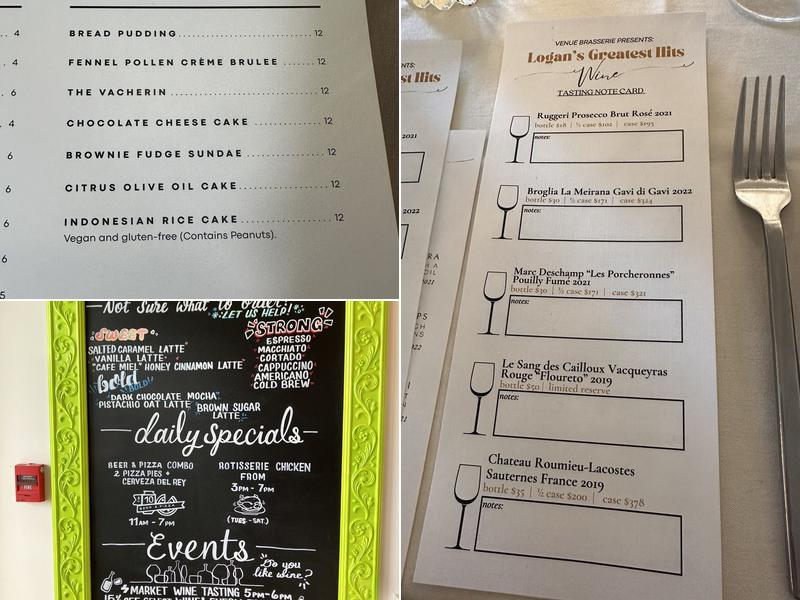 4
4
6
4
6
6
6
6
5
BREAD PUDDING 12
FENNEL POLLEN CRÈME BRULEE 12
THE VACHERIN 12
CHOCOLATE CHEESE CAKE 12
BROWNIE FUDGE SUNDAE 12
CITRUS OLIVE OIL CAKE 12
INDONESIAN RICE CAKE 12
Vegan and gluten-free (Contains Peanuts).
st Hits
2021
VENUE BRASSERIE PRESENTS:
Logan's Greatest Hits
Wine
TASTING NOTE CARD
Ruggeri Prosecco Brut Rosé 2021
bottle $18 | ½ case $102 | case $195
notes:
Broglia La Meirana Gavi di Gavi 2022
bottle $30 | ½ case $171 | case $324
notes:
Marc Deschamp "Les Porcheronnes"
Pouilly Fumé 2021
bottle $30 | ½ case $171 | case $321
notes:
Le Sang des Cailloux Vacqueyras
Rouge "Floureto" 2019
bottle $50 | limited reserve
notes:
Chateau Roumieu-Lacostes
Sauternes France 2019
bottle $35 | ½ case $200 | case $378
notes:
Not Sure What to order?
LET US HELP!
SWEET
SALTED CARAMEL LATTE
VANILLA LATTE
"CAFE MIEL" HONEY CINNAMON LATTE
STRONG
ESPRESSO
MACCHIATO
CORTADO
CAPPUCCINO
AMERICANO
COLD BREW
bold
BOLD!
DARK CHOCOLATE MOCHA
PISTACHIO OAT LATTE
BROWN SUGAR
LATTE
daily specials
BEER & PIZZA COMBO
2 PIZZA PIES +
CERVEZA DEL REY
11AM - 7PM
ROTISSERIE CHICKEN
FROM
3PM - 7PM
(TUES.-SAT.)
Events
Do you
like wine?
MARKET WINE TASTING 5PM-6PM
FIRE